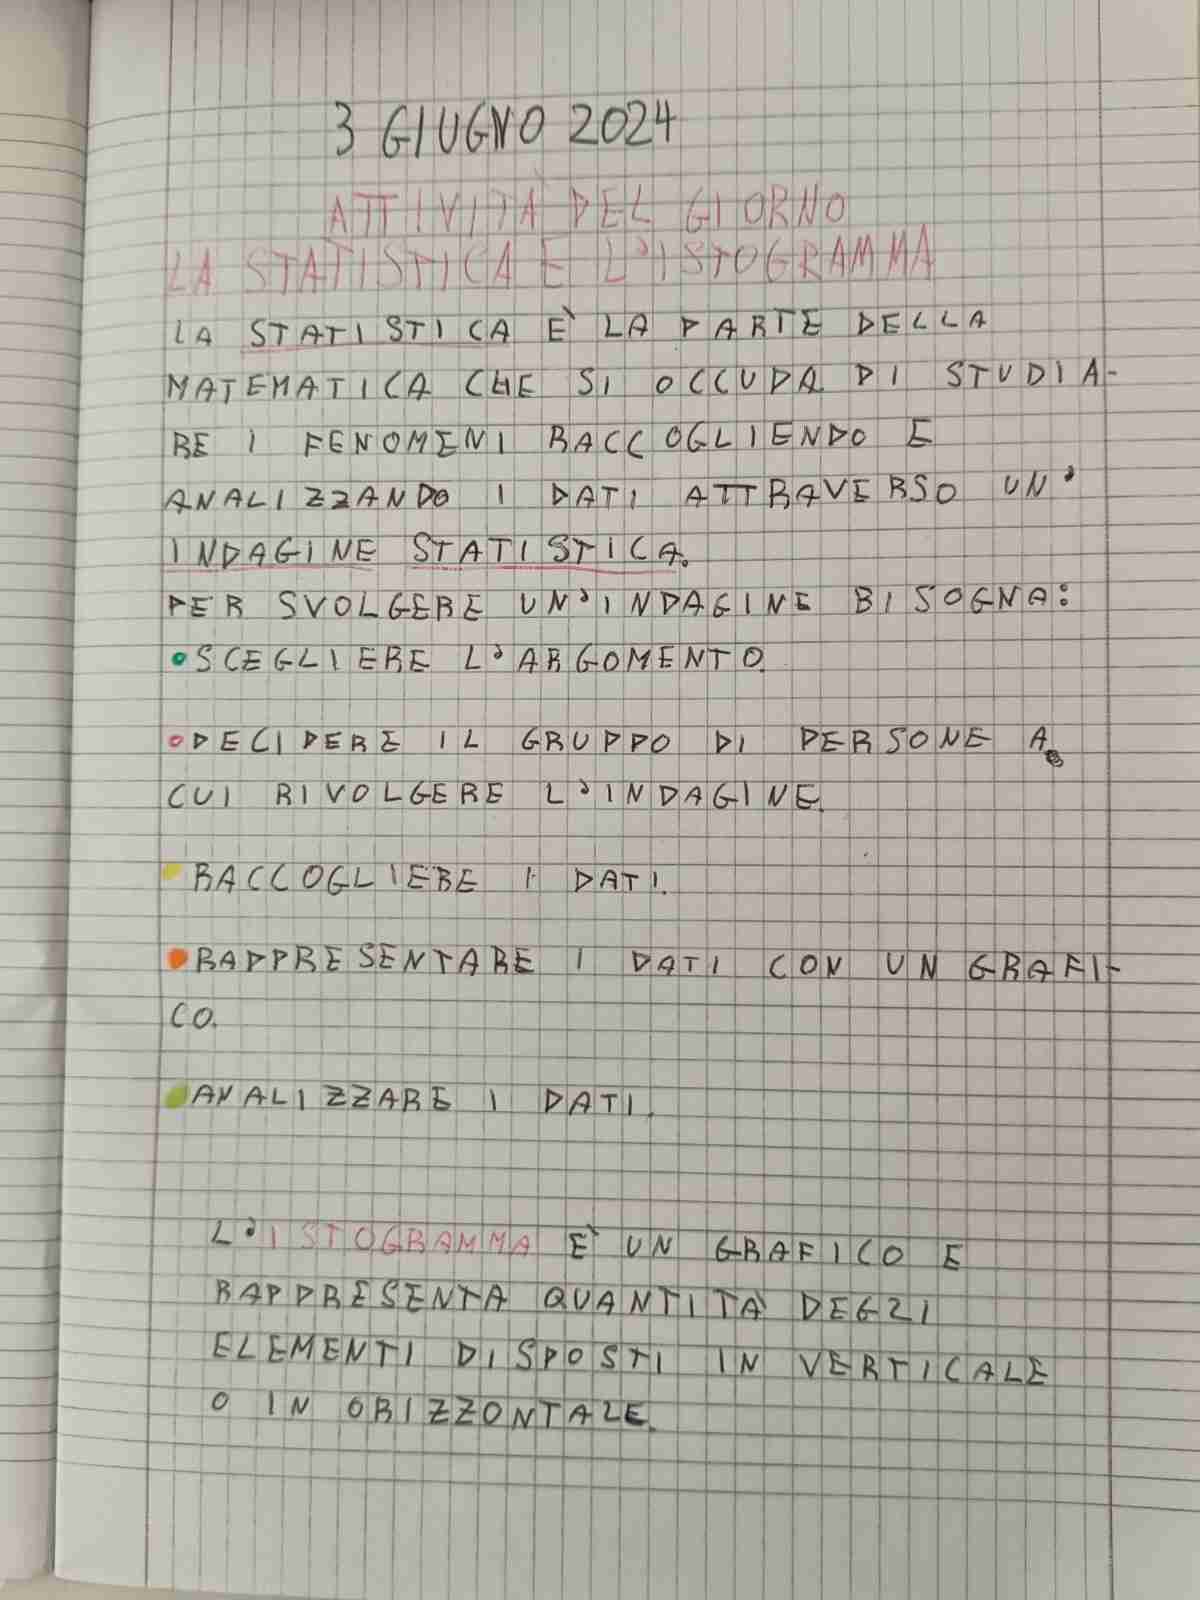 3 GIUGNO 2024
ATTIVITÀ DEL GIORNO
LA STATISTICA E L'ISTOGRAMMA
LA STATISTICA È LA PARTE DELLA
MATEMATICA CHE SI OCCUPA DI STUDIA-
RE I FENOMENI RACCOGLIENDO E
ANALIZZANDO I DATI ATTRAVERSO UN'
INDAGINE STATISTICA.
PER SVOLGERE UN'INDAGINE BISOGNA:
• SCEGLIERE L'ARGOMENTO.
• DECIDERE IL GRUPPO DI PERSONE A
CUI RIVOLGERE L'INDAGINE.
• RACCOGLIERE I DATI.
• RAPPRESENTARE I DATI CON UN GRAFI-
CO.
• ANALIZZARE I DATI.
L'ISTOGRAMMA È UN GRAFICO E
RAPPRESENTA QUANTITÀ DEGLI
ELEMENTI DISPOSTI IN VERTICALE
O IN ORIZZONTALE.